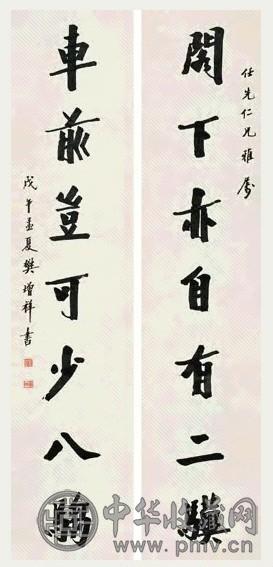 任先仁兄雅屬
閣下亦自有二驥
車前豈可少八騶
戊午孟夏樊增祥書
中华收藏网
www.pmv.cn